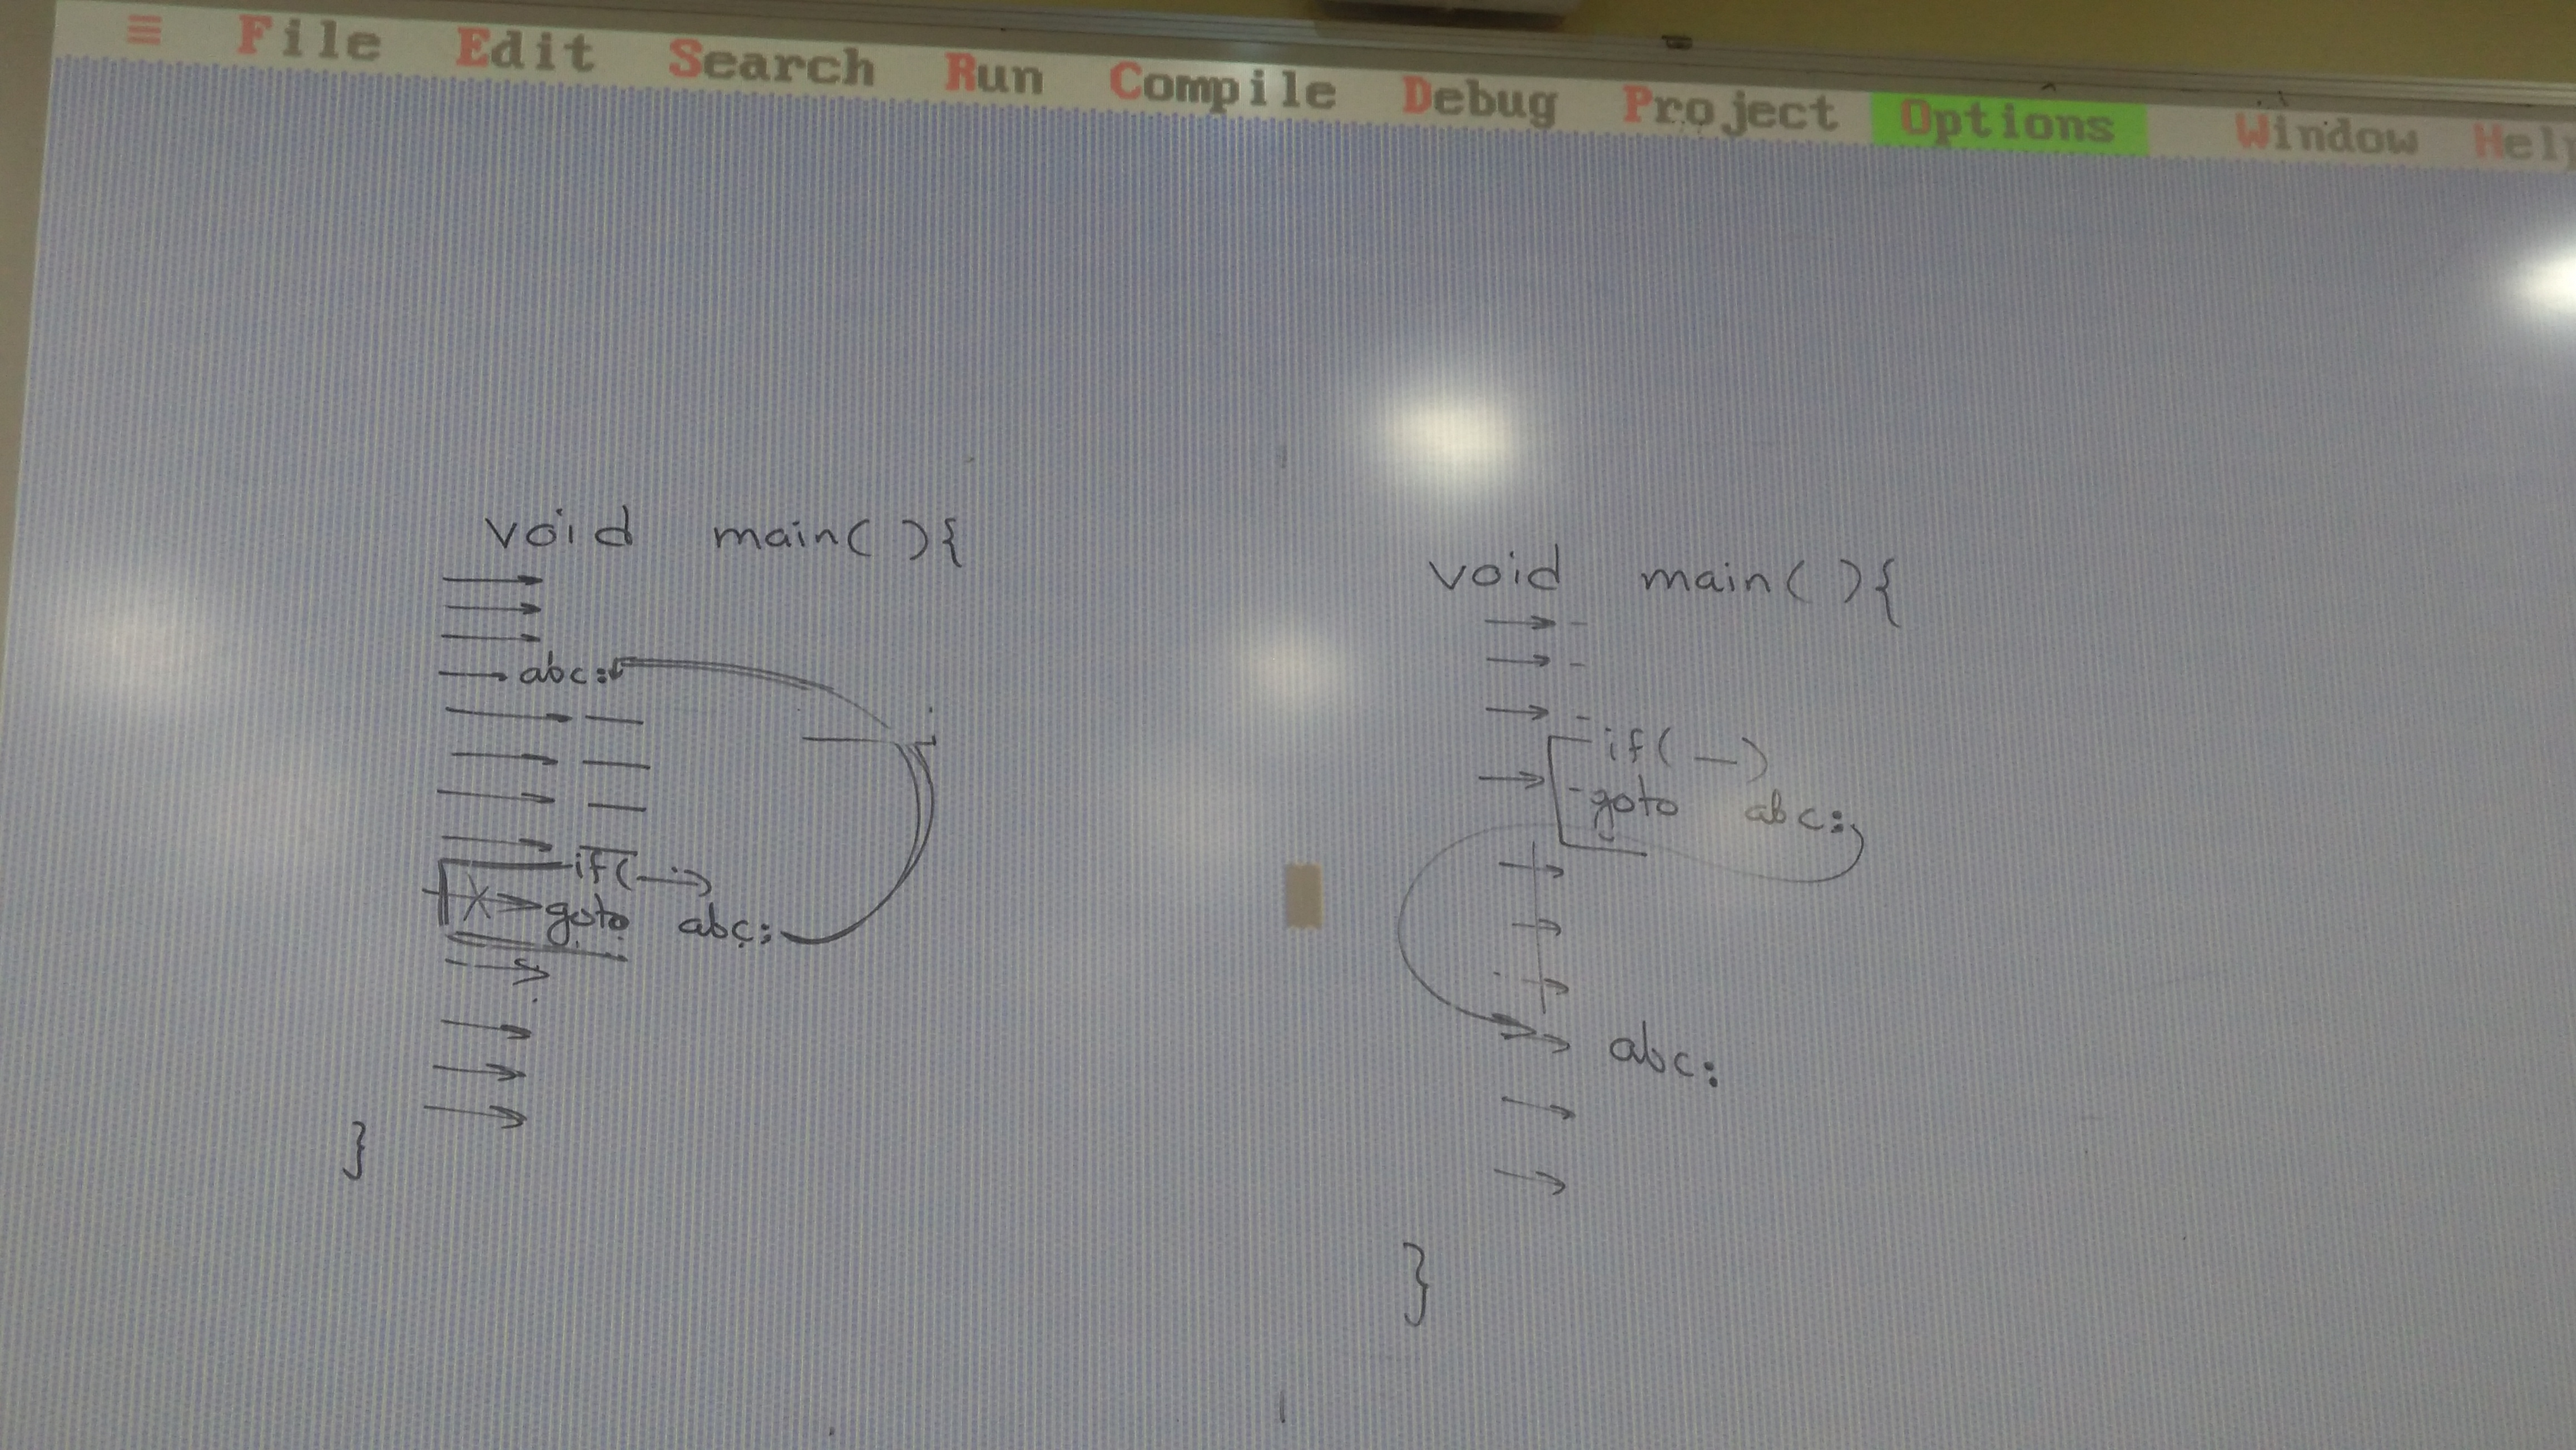 ≡ File Edit Search Run Compile Debug Project Options Window Help
void main(){
abc:
if(—)
goto abc;
}
void main(){
if(—)
goto abc;
abc:
}